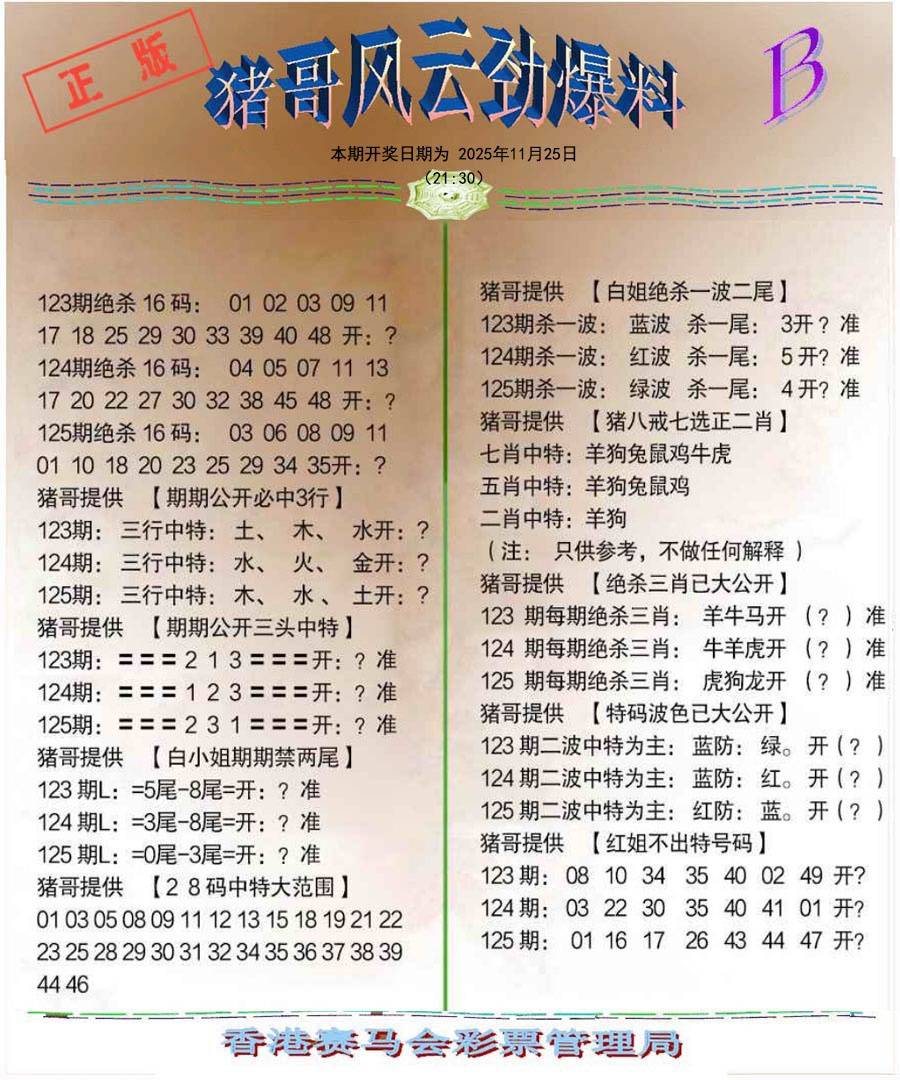 正版
猪哥风云劲爆料
B
本期开奖日期为 2025年11月25日
（21:30）
123期绝杀16码： 01 02 03 09 11
17 18 25 29 30 33 39 40 48 开：?
124期绝杀16码： 04 05 07 11 13
17 20 22 27 30 32 38 45 48 开：?
125期绝杀16码： 03 06 08 09 11
01 10 18 20 23 25 29 34 35开：?
猪哥提供 【期期公开必中3行】
123期： 三行中特： 土、 木、 水开：?
124期： 三行中特： 水、 火、 金开：?
125期： 三行中特： 木、 水 、 土开：?
猪哥提供 【期期公开三头中特】
123期：===2 1 3===开：? 准
124期：===1 2 3===开：? 准
125期：===2 3 1===开：? 准
猪哥提供 【白小姐期期禁两尾】
123 期L：=5尾-8尾=开：? 准
124 期L：=3尾-8尾=开：? 准
125 期L：=0尾-3尾=开：? 准
猪哥提供 【2 8 码中特大范围】
01 03 05 08 09 11 12 13 15 18 19 21 22
23 25 28 29 30 31 32 34 35 36 37 38 39
44 46
猪哥提供 【白姐绝杀一波二尾】
123期杀一波： 蓝波 杀一尾： 3开? 准
124期杀一波： 红波 杀一尾： 5 开? 准
125期杀一波： 绿波 杀一尾： 4 开? 准
猪哥提供 【猪八戒七选正二肖】
七肖中特：羊狗兔鼠鸡牛虎
五肖中特：羊狗兔鼠鸡
二肖中特：羊狗
（注： 只供参考，不做任何解释 ）
猪哥提供 【绝杀三肖已大公开】
123 期每期绝杀三肖： 羊牛马开 （? ）准
124 期每期绝杀三肖： 牛羊虎开 （? ）准
125 期每期绝杀三肖： 虎狗龙开 （? ）准
猪哥提供 【特码波色已大公开】
123 期二波中特为主： 蓝防： 绿。 开（? ）
124 期二波中特为主： 蓝防： 红。 开（? ）
125 期二波中特为主： 红防： 蓝。 开（? ）
猪哥提供 【红姐不出特号码】
123 期： 08 10 34 35 40 02 49 开?
124 期： 03 22 30 35 40 41 01 开?
125 期： 01 16 17 26 43 44 47 开?
香港赛马会彩票管理局